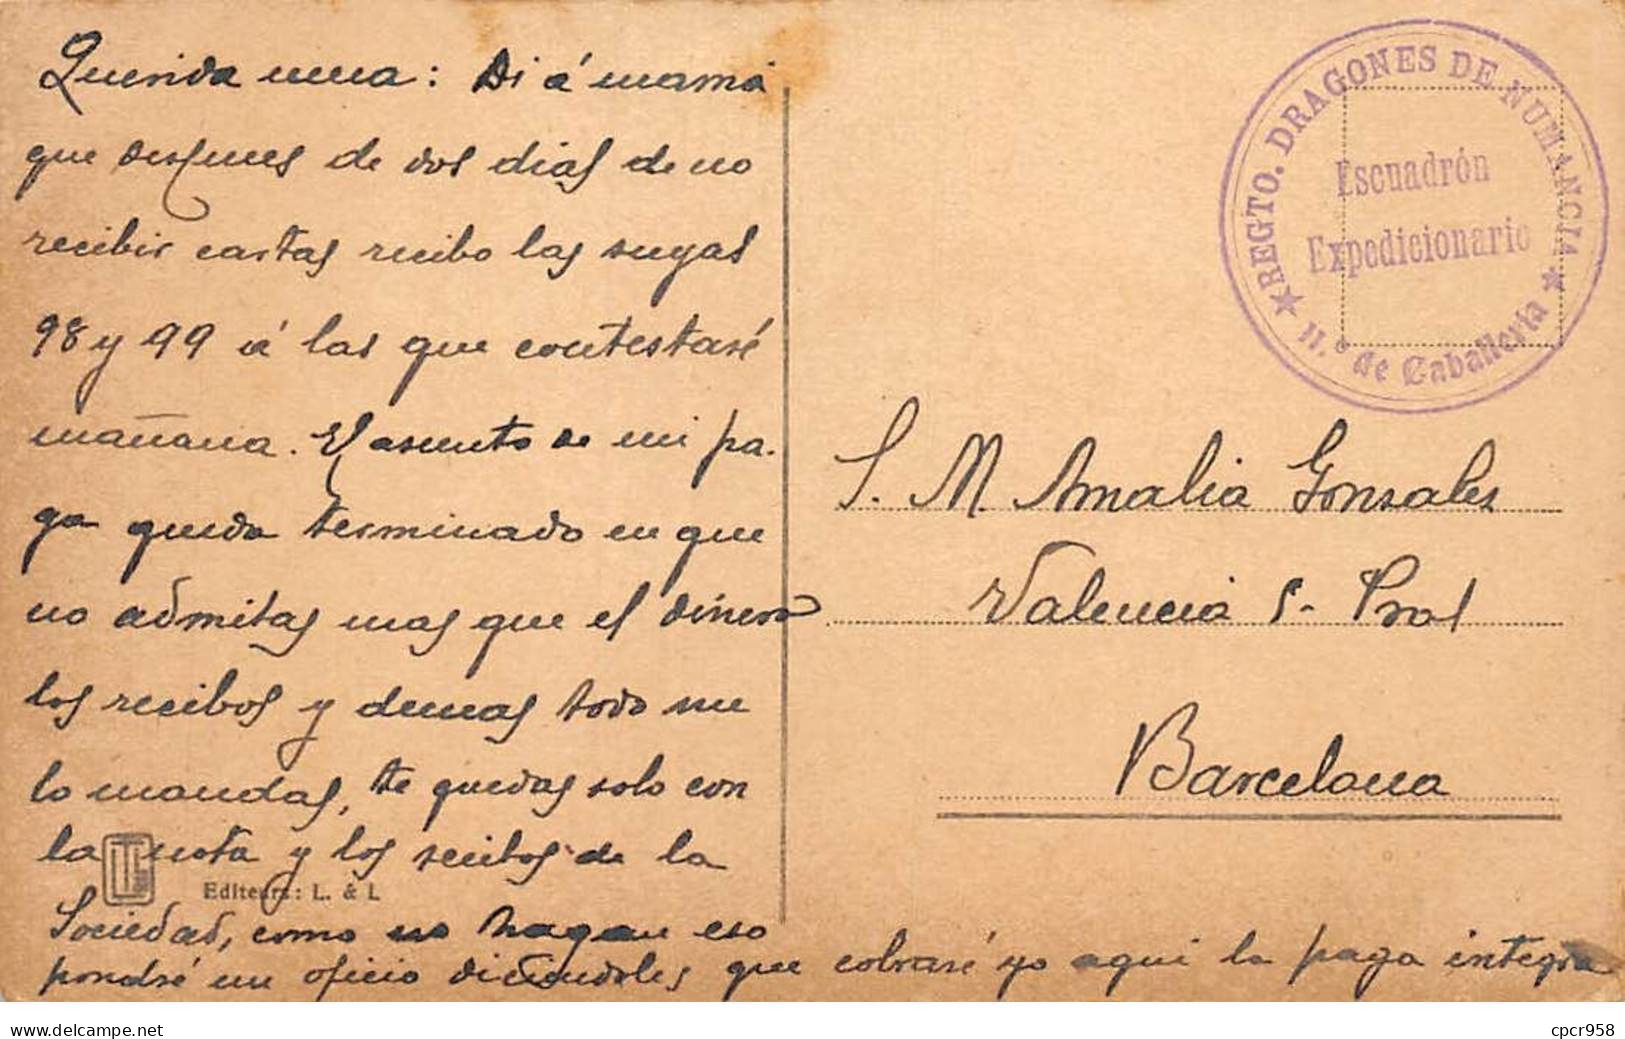 Querida mua: Di á mamá
que despues de dos dias de no
recibir cartas recibo las suyas
98 y 99 á las que contestaré
mañana. El asunto de mi pa-
ga queda terminado en que
no admitas mas que el dinero
los recibos y demas todo me
lo mandas, te quedas solo con
la nota y los recibos de la
Sociedad, como no hagan eso
pondré un oficio diciendoles que cobraré yo aqui la paga integra
Editeurs: L. & L
REGTO. DRAGONES DE NUMANCIA
11.º de Caballería
Escuadrón
Expedicionario
S. M. Amalia Gonsales
Valencia 5- Pral
Barcelona
www.delcampe.net
cpcr958